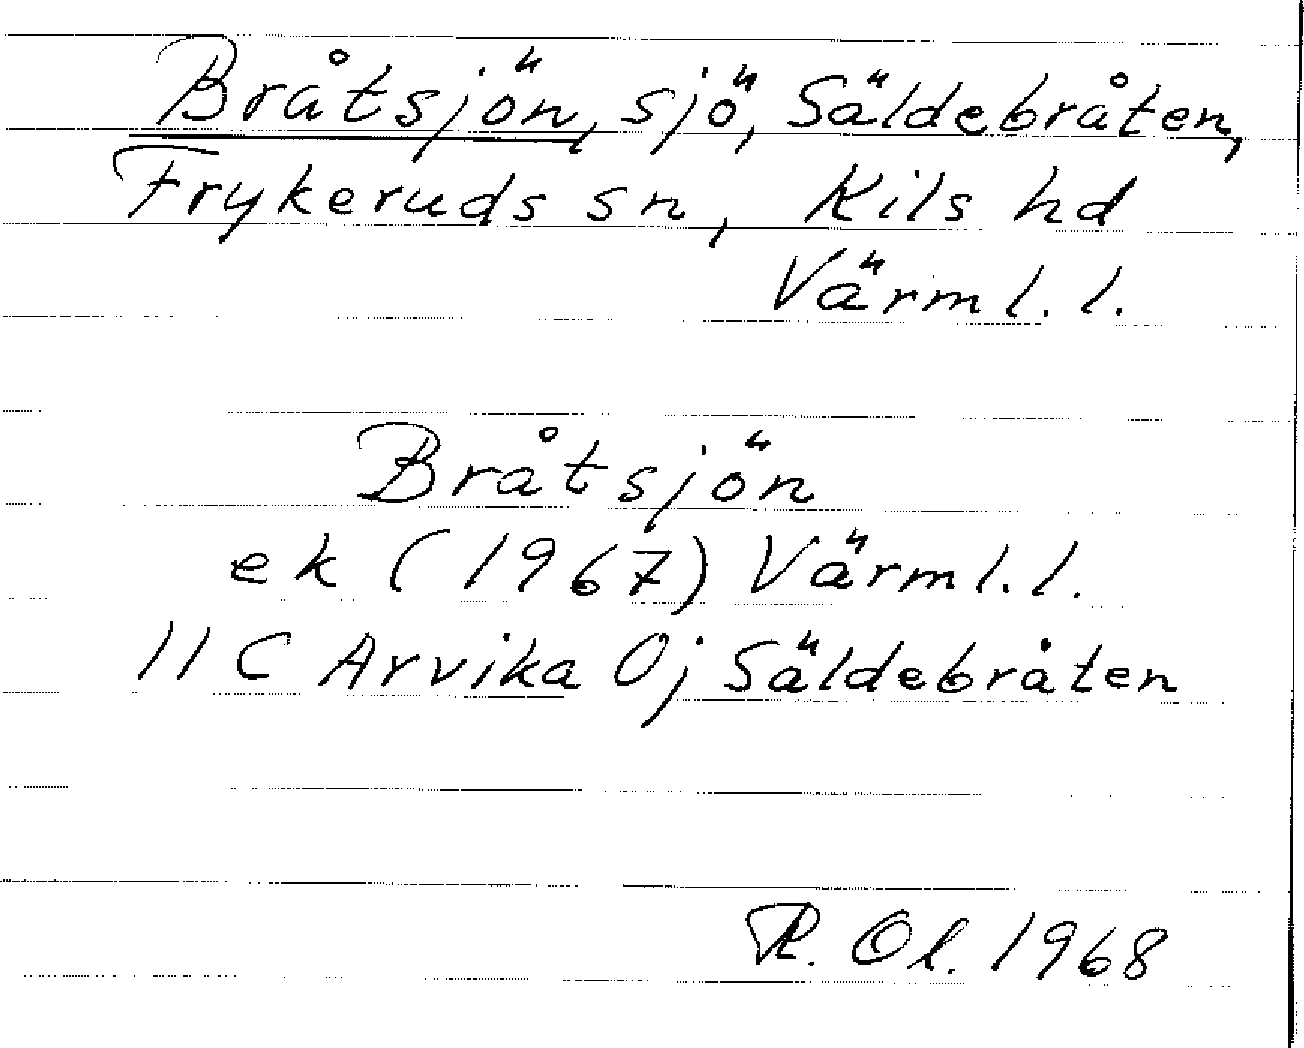 Bråtsjön, sjö, Säldebråten,
Frykeruds sn, Kils hd
Värml. l.
Bråtsjön
ek (1967) Värml. l.
11 C Arvika Oj Säldebråten
R. Ol. 1968